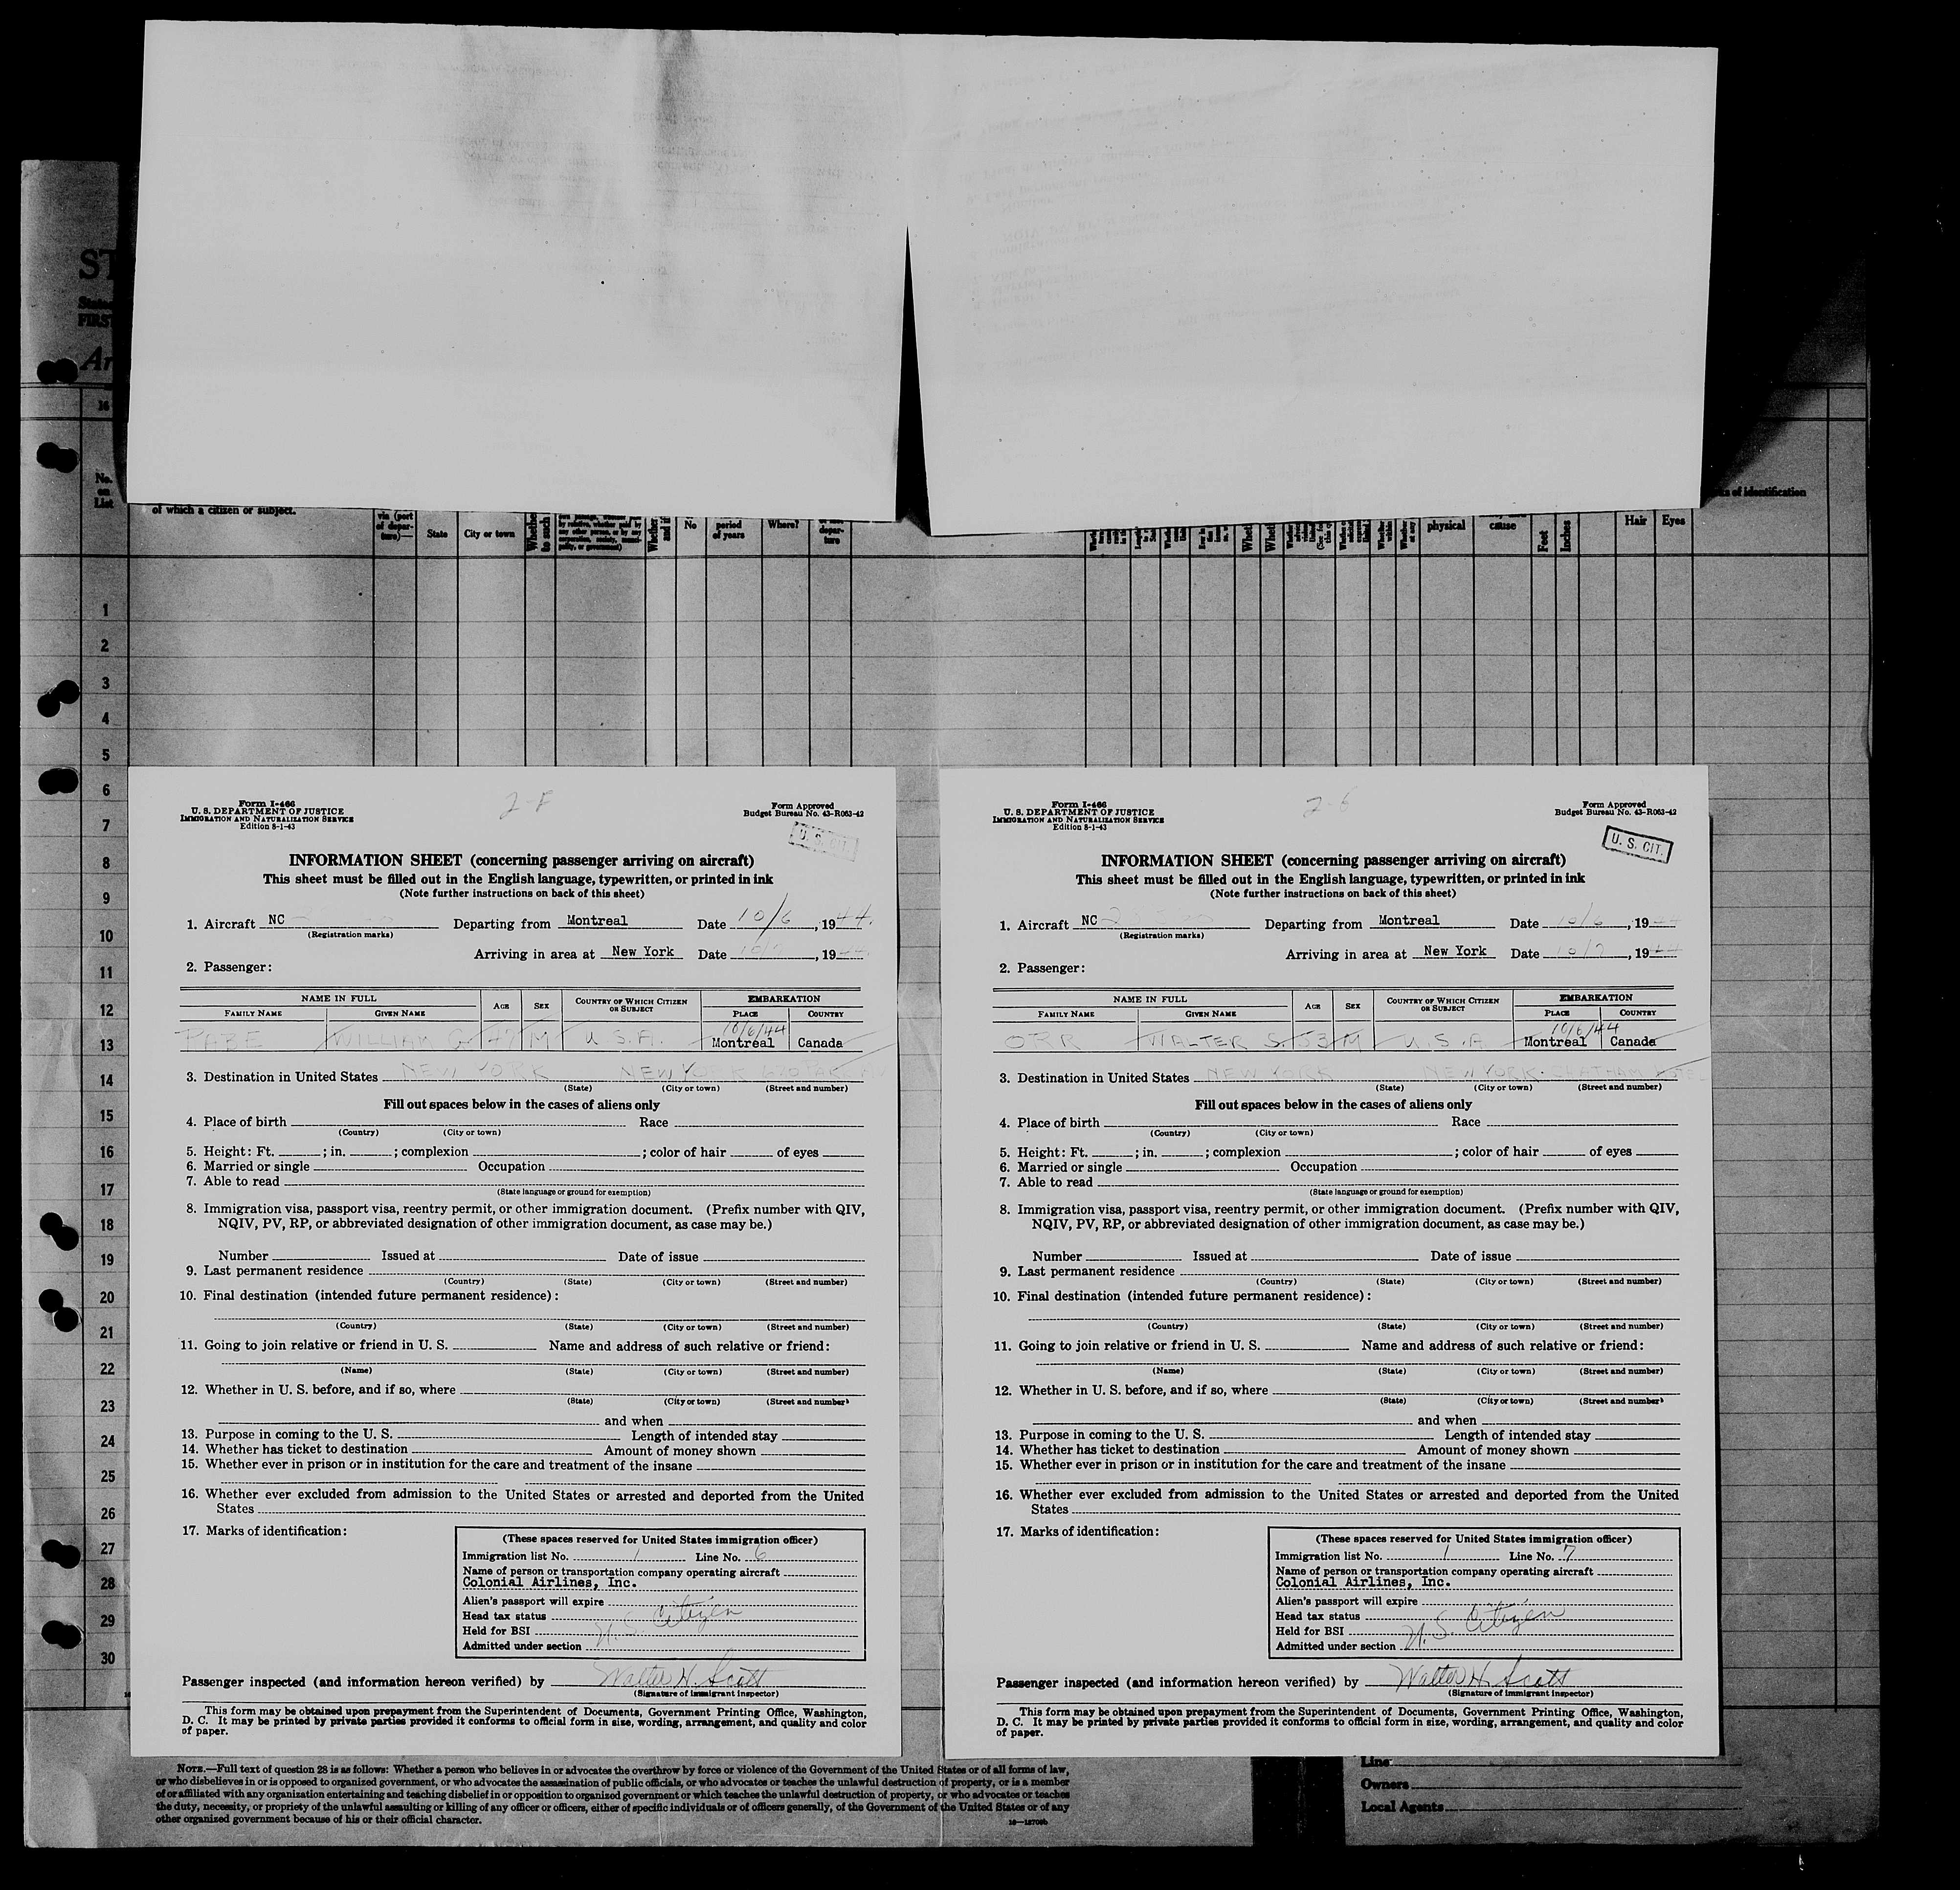 ST
FIRST
An
16
No.
on
List
of which a citizen or subject.
via (port
of depar-
ture)—
State
City or town
No
period
of years
Where?
depar-
ture
physical
cause
Feet
Inches
Hair
Eyes
of identification
1
2
3
4
5
6
7
8
9
10
11
12
13
14
15
16
17
18
19
20
21
22
23
24
25
26
27
28
29
30
Form I-466
U. S. DEPARTMENT OF JUSTICE
IMMIGRATION AND NATURALIZATION SERVICE
Edition 8-1-43
2-8
Form Approved
Budget Bureau No. 43-R063-42
U. S. CIT.
INFORMATION SHEET (concerning passenger arriving on aircraft)
This sheet must be filled out in the English language, typewritten, or printed in ink
(Note further instructions on back of this sheet)
1. Aircraft NC Departing from Montreal Date 10/6, 1944.
(Registration marks)
Arriving in area at New York Date 10/7, 1944
2. Passenger:
NAME IN FULL AGE SEX COUNTRY OF WHICH CITIZEN OR SUBJECT EMBARKATION
FAMILY NAME GIVEN NAME PLACE COUNTRY
10/6/44
WILLIAM G 47 M U.S.A. Montreal Canada
3. Destination in United States NEW YORK NEW YORK
(State) (City or town) (Street and number)
Fill out spaces below in the cases of aliens only
4. Place of birth Race
(Country) (City or town)
5. Height: Ft. ; in. ; complexion ; color of hair of eyes
6. Married or single Occupation
7. Able to read
(State language or ground for exemption)
8. Immigration visa, passport visa, reentry permit, or other immigration document. (Prefix number with QIV,
NQIV, PV, RP, or abbreviated designation of other immigration document, as case may be.)
Number Issued at Date of issue
9. Last permanent residence
(Country) (State) (City or town) (Street and number)
10. Final destination (intended future permanent residence):
(Country) (State) (City or town) (Street and number)
11. Going to join relative or friend in U. S. Name and address of such relative or friend:
(Name) (State) (City or town) (Street and number)
12. Whether in U. S. before, and if so, where
(State) (City or town) (Street and number)
and when
13. Purpose in coming to the U. S. Length of intended stay
14. Whether has ticket to destination Amount of money shown
15. Whether ever in prison or in institution for the care and treatment of the insane
16. Whether ever excluded from admission to the United States or arrested and deported from the United
States
17. Marks of identification:
(These spaces reserved for United States immigration officer)
Immigration list No. 1 Line No. 6
Name of person or transportation company operating aircraft
Colonial Airlines, Inc.
Alien's passport will expire
Head tax status
Held for BSI U. S. Citizen
Admitted under section
Passenger inspected (and information hereon verified) by Walter H. Scott
(Signature of immigrant inspector)
This form may be obtained upon prepayment from the Superintendent of Documents, Government Printing Office, Washington,
D. C. It may be printed by private parties provided it conforms to official form in size, wording, arrangement, and quality and color
of paper.
Form I-466
U. S. DEPARTMENT OF JUSTICE
IMMIGRATION AND NATURALIZATION SERVICE
Edition 8-1-43
2-6
Form Approved
Budget Bureau No. 43-R063-42
U. S. CIT.
INFORMATION SHEET (concerning passenger arriving on aircraft)
This sheet must be filled out in the English language, typewritten, or printed in ink
(Note further instructions on back of this sheet)
1. Aircraft NC Departing from Montreal Date 10/6, 1944
(Registration marks)
Arriving in area at New York Date 10/7, 1944
2. Passenger:
NAME IN FULL AGE SEX COUNTRY OF WHICH CITIZEN OR SUBJECT EMBARKATION
FAMILY NAME GIVEN NAME PLACE COUNTRY
10/6/44
ORR WALTER S. 53 M U.S.A Montreal Canada
3. Destination in United States NEW YORK NEW YORK. CHATHAM HOTEL
(State) (City or town) (Street and number)
Fill out spaces below in the cases of aliens only
4. Place of birth Race
(Country) (City or town)
5. Height: Ft. ; in. ; complexion ; color of hair of eyes
6. Married or single Occupation
7. Able to read
(State language or ground for exemption)
8. Immigration visa, passport visa, reentry permit, or other immigration document. (Prefix number with QIV,
NQIV, PV, RP, or abbreviated designation of other immigration document, as case may be.)
Number Issued at Date of issue
9. Last permanent residence
(Country) (State) (City or town) (Street and number)
10. Final destination (intended future permanent residence):
(Country) (State) (City or town) (Street and number)
11. Going to join relative or friend in U. S. Name and address of such relative or friend:
(Name) (State) (City or town) (Street and number)
12. Whether in U. S. before, and if so, where
(State) (City or town) (Street and number)
and when
13. Purpose in coming to the U. S. Length of intended stay
14. Whether has ticket to destination Amount of money shown
15. Whether ever in prison or in institution for the care and treatment of the insane
16. Whether ever excluded from admission to the United States or arrested and deported from the United
States
17. Marks of identification:
(These spaces reserved for United States immigration officer)
Immigration list No. 1 Line No. 7
Name of person or transportation company operating aircraft
Colonial Airlines, Inc.
Alien's passport will expire
Head tax status
Held for BSI U. S. Citizen
Admitted under section
Passenger inspected (and information hereon verified) by Walter H. Scott
(Signature of immigrant inspector)
This form may be obtained upon prepayment from the Superintendent of Documents, Government Printing Office, Washington,
D. C. It may be printed by private parties provided it conforms to official form in size, wording, arrangement, and quality and color
of paper.
NOTE.—Full text of question 28 is as follows: Whether a person who believes in or advocates the overthrow by force or violence of the Government of the United States or of all forms of law,
or who disbelieves in or is opposed to organized government, or who advocates the assassination of public officials, or who advocates or teaches the unlawful destruction of property, or is a member
of or affiliated with any organization entertaining and teaching disbelief in or opposition to organized government or which teaches the unlawful destruction of property, or who advocates or teaches
the duty, necessity, or propriety of the unlawful assaulting or killing of any officer or officers, either of specific individuals or of officers generally, of the Government of the United States or of any
other organized government because of his or their official character.
Line
Owners
Local Agents